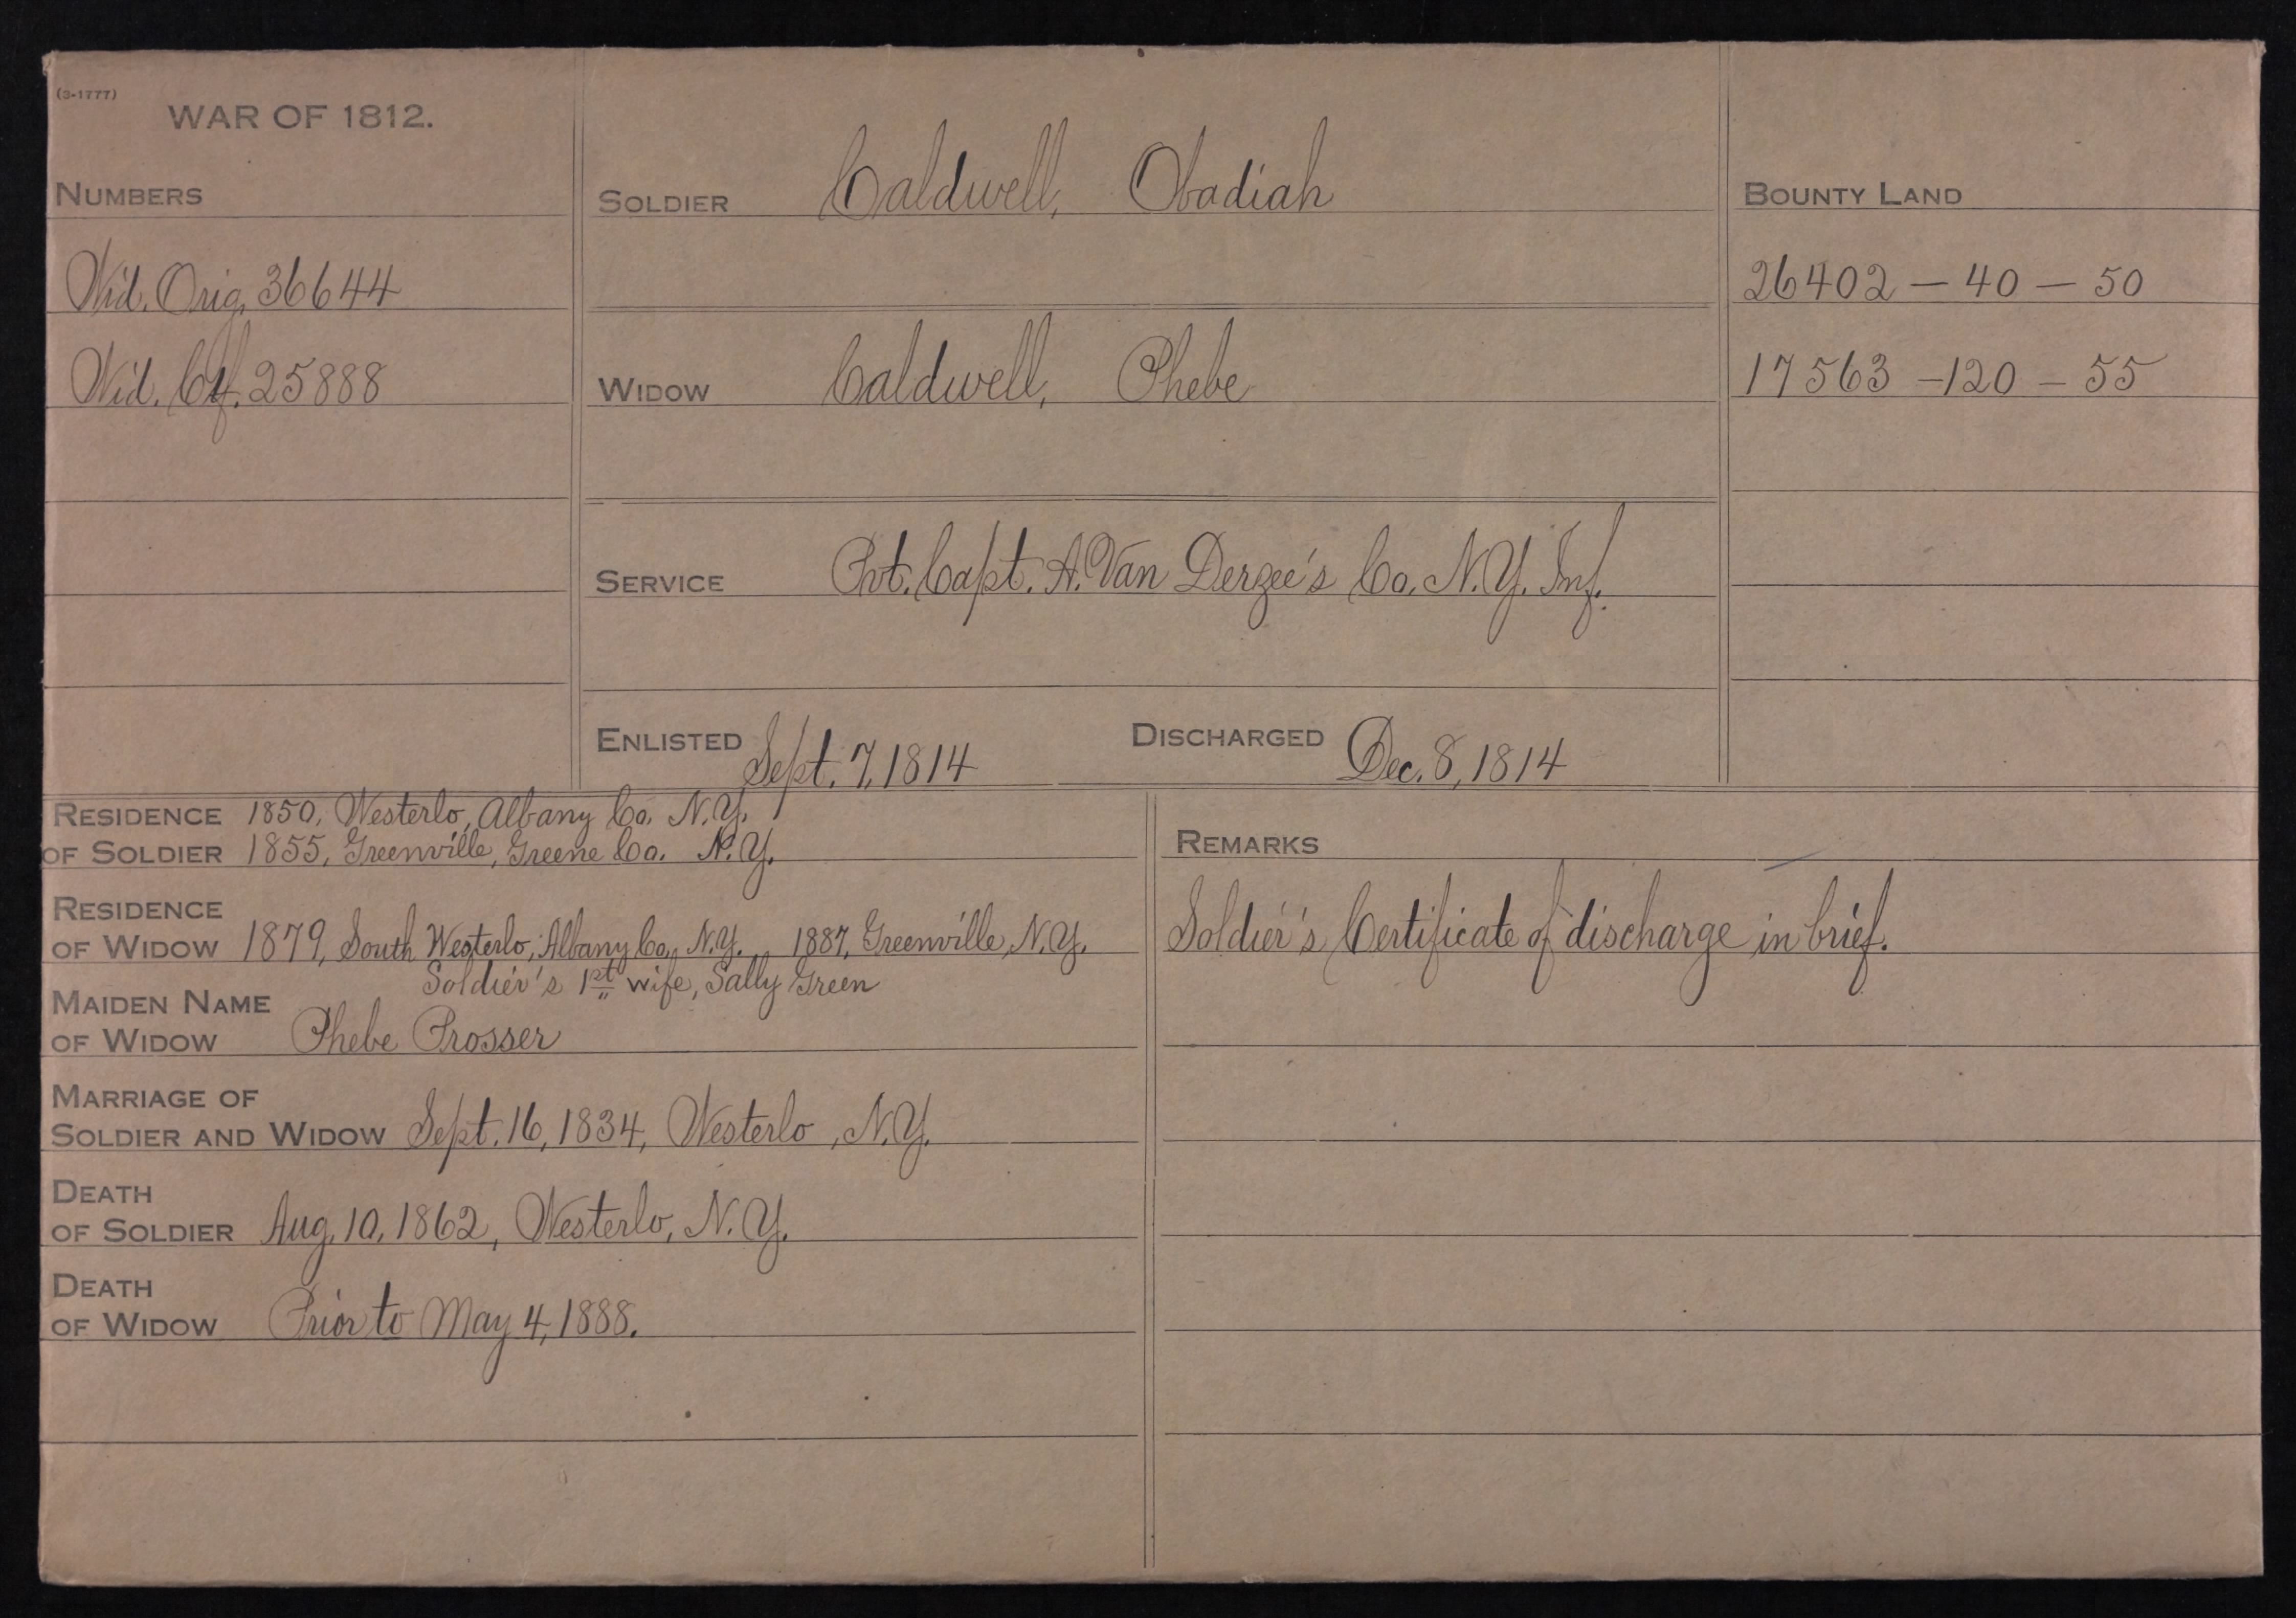 (3-1777)
WAR OF 1812.
NUMBERS
Wid. Orig. 36644
Wid. Ctf. 25888
SOLDIER Caldwell, Obadiah
WIDOW Caldwell, Phebe
SERVICE Pvt. Capt. A. Van Derzee's Co. N.Y. Inf.
ENLISTED Sept. 7, 1814 DISCHARGED Dec. 8, 1814
BOUNTY LAND
26402 — 40 — 50
17563 — 120 — 55
RESIDENCE 1850, Westerlo, Albany Co. N.Y.
OF SOLDIER 1855, Greenville, Greene Co. N.Y.
RESIDENCE
OF WIDOW 1879, South Westerlo, Albany Co. N.Y. 1887, Greenville, N.Y.
Soldier's 1st wife, Sally Green
MAIDEN NAME
OF WIDOW Phebe Prosser
MARRIAGE OF
SOLDIER AND WIDOW Sept. 16, 1834, Westerlo, N.Y.
DEATH
OF SOLDIER Aug. 10, 1862, Westerlo, N.Y.
DEATH
OF WIDOW Prior to May 4, 1888.
REMARKS
Soldier's Certificate of discharge in brief.